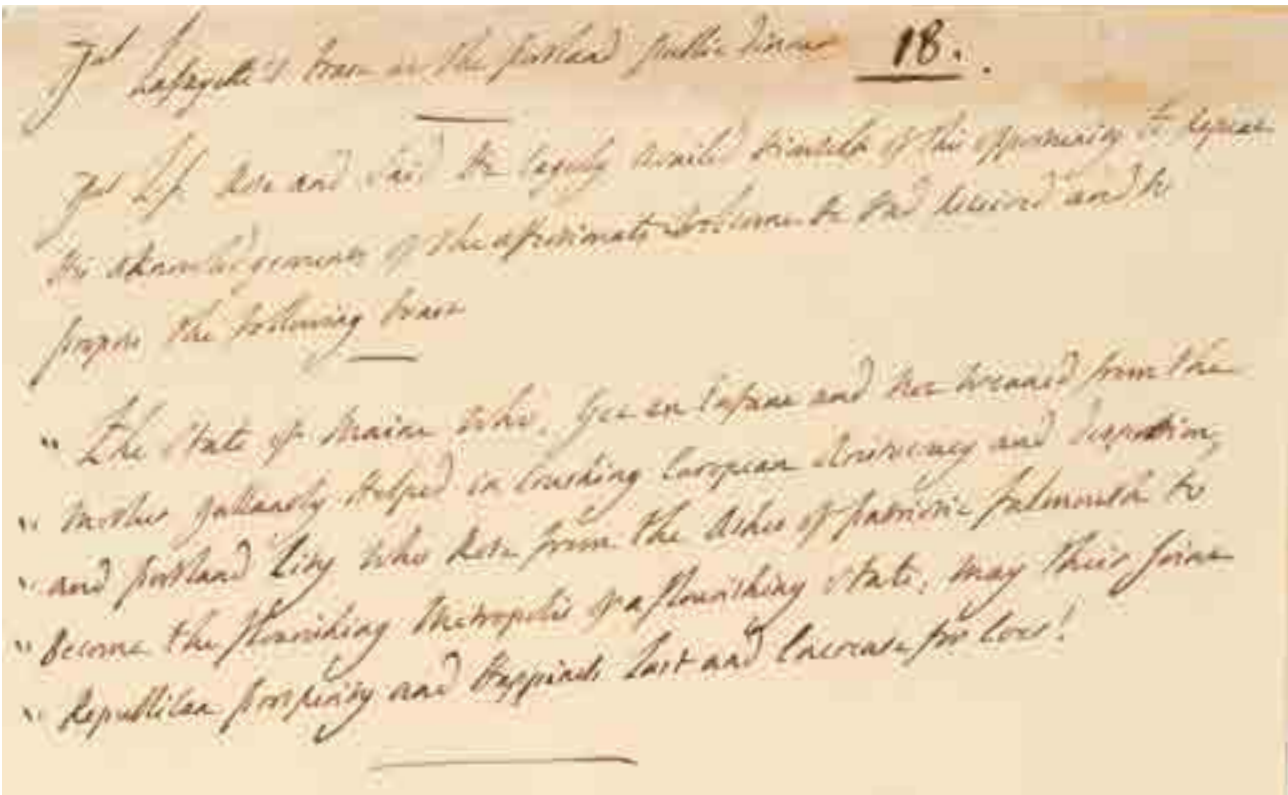 Gal Lafayette's toast at the portland public dinner 18.
Gal Lf. Rose and Said He eagerly availed Himself of this opportunity to repeat
His aknowledgements of the affectionate Wellcome He Had Received and to
propose the following toast
" The State of Maine Who, Yet an infant and not weaned from the
" mother gallantly Helped in Crushing European Aristocracy and despotism,
" and portland City Who Rose from the Ashes of patriotic falmouth to
" Become the flourishing Metropolis of a flourishing State, may their joint
" Republican prosperity and Happiness Last and increase for Ever!